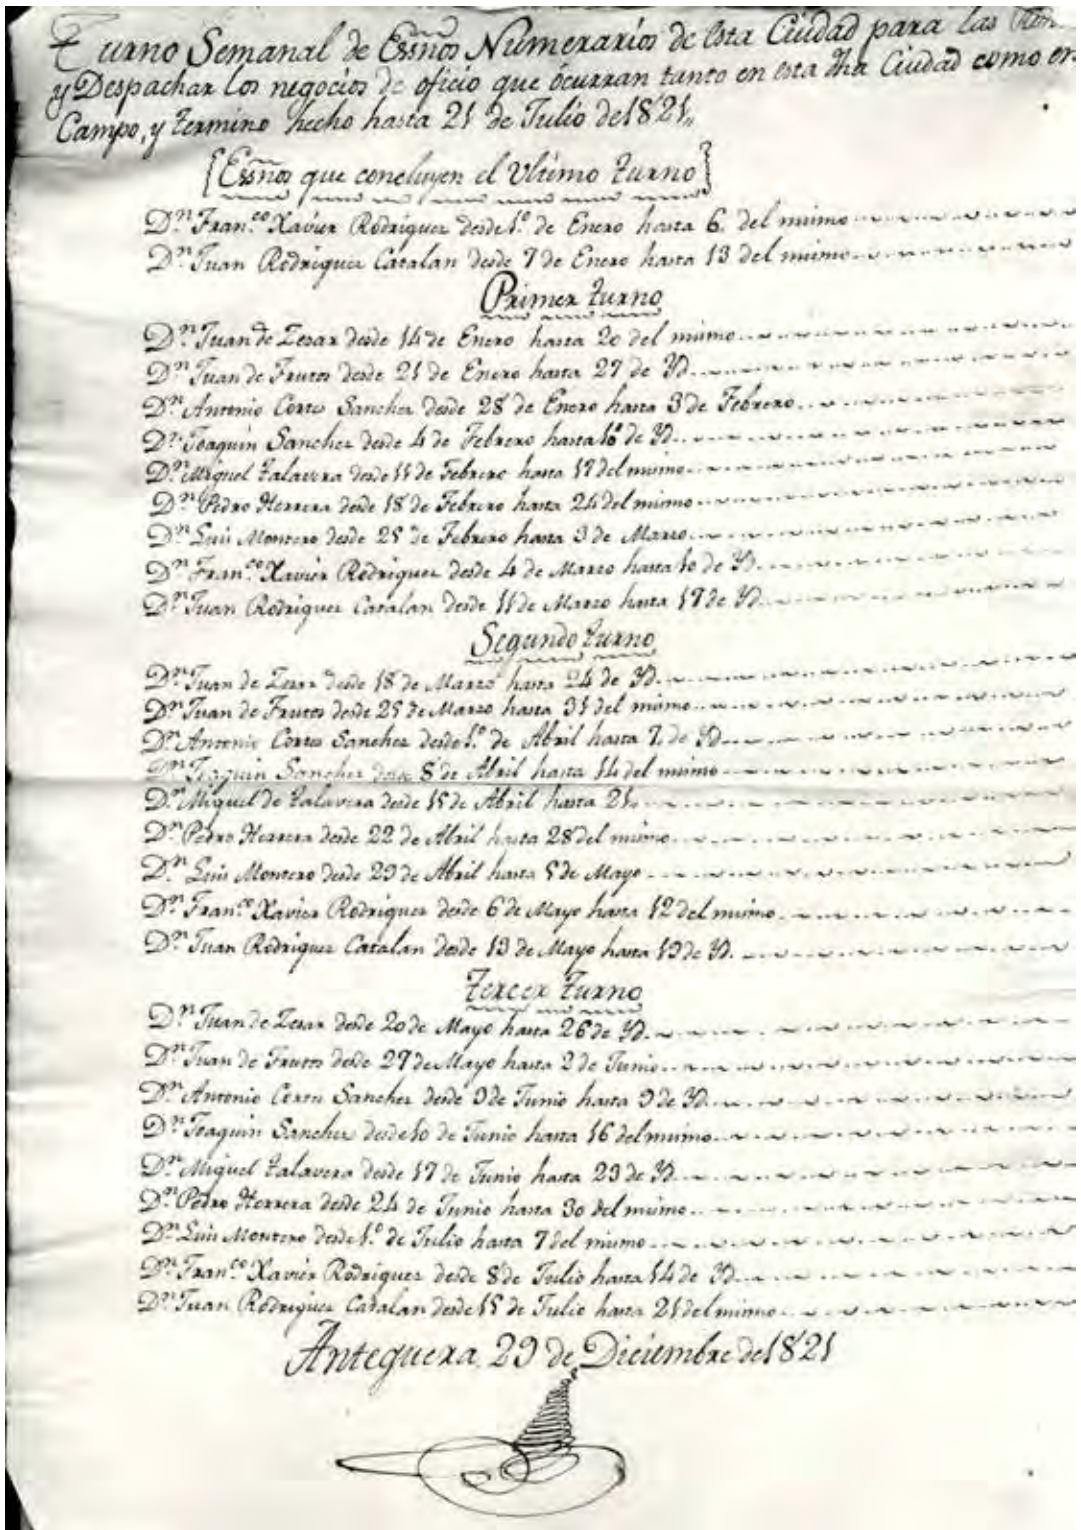 Turno Semanal de Essños Numerarios de esta Ciudad para las
y Despachar los negocios de oficio que ócurran tanto en esta dha Ciudad como en
Campo, y termino hecho hasta 21 de Julio de 1821,,
{Essños que concluyen el Ultimo turno}
Dn. Fran.co Xavier Rodriguez desde 1.º de Enero hasta 6. del mismo
Dn. Juan Rodriguez Catalan desde 7 de Enero hasta 13 del mismo
Primer turno
Dn. Juan de Zesar desde 14 de Enero hasta 20 del mismo
Dn. Juan de Frutos desde 21 de Enero hasta 27 de Yd.
Dn. Antonio Cortes Sanchez desde 28 de Enero hasta 3 de Febrero
Dn. Joaquin Sanchez desde 4 de Febrero hasta 10 de Yd.
Dn. Miguel Talavera desde 11 de Febrero hasta 17 del mismo
Dn. Pedro Herrera desde 18 de Febrero hasta 24 del mismo
Dn. Luis Montero desde 25 de Febrero hasta 3 de Marzo
Dn. Fran.co Xavier Rodriguez desde 4 de Marzo hasta 10 de Yd.
Dn. Juan Rodriguez Catalan desde 11 de Marzo hasta 17 de Yd.
Segundo turno
Dn. Juan de Zesar desde 18 de Marzo hasta 24 de Yd.
Dn. Juan de Frutos desde 25 de Marzo hasta 31 del mismo
Dn. Antonio Cortes Sanchez desde 1.º de Abril hasta 7. de Yd.
Dn. Joaquin Sanchez desde 8 de Abril hasta 14 del mismo
Dn. Miguel de Talavera desde 15 de Abril hasta 21.
Dn. Pedro Herrera desde 22 de Abril hasta 28 del mismo
Dn. Luis Montero desde 29 de Abril hasta 5 de Mayo
Dn. Fran.co Xavier Rodriguez desde 6 de Mayo hasta 12 del mismo
Dn. Juan Rodriguez Catalan desde 13 de Mayo hasta 19 de Yd.
Tercer Turno
Dn. Juan de Zesar desde 20 de Mayo hasta 26 de Yd.
Dn. Juan de Frutos desde 27 de Mayo hasta 2 de Junio
Dn. Antonio Cortes Sanchez desde 3 de Junio hasta 9 de Yd.
Dn. Joaquin Sanchez desde 10 de Junio hasta 16 del mismo
Dn. Miguel Talavera desde 17 de Junio hasta 23 de Yd.
Dn. Pedro Herrera desde 24 de Junio hasta 30 del mismo
Dn. Luis Montero desde 1.º de Julio hasta 7 del mismo
Dn. Fran.co Xavier Rodriguez desde 8 de Julio hasta 14 de Yd.
Dn. Juan Rodriguez Catalan desde 15 de Julio hasta 21 del mismo
Antequera 29 de Diciembre de 1821